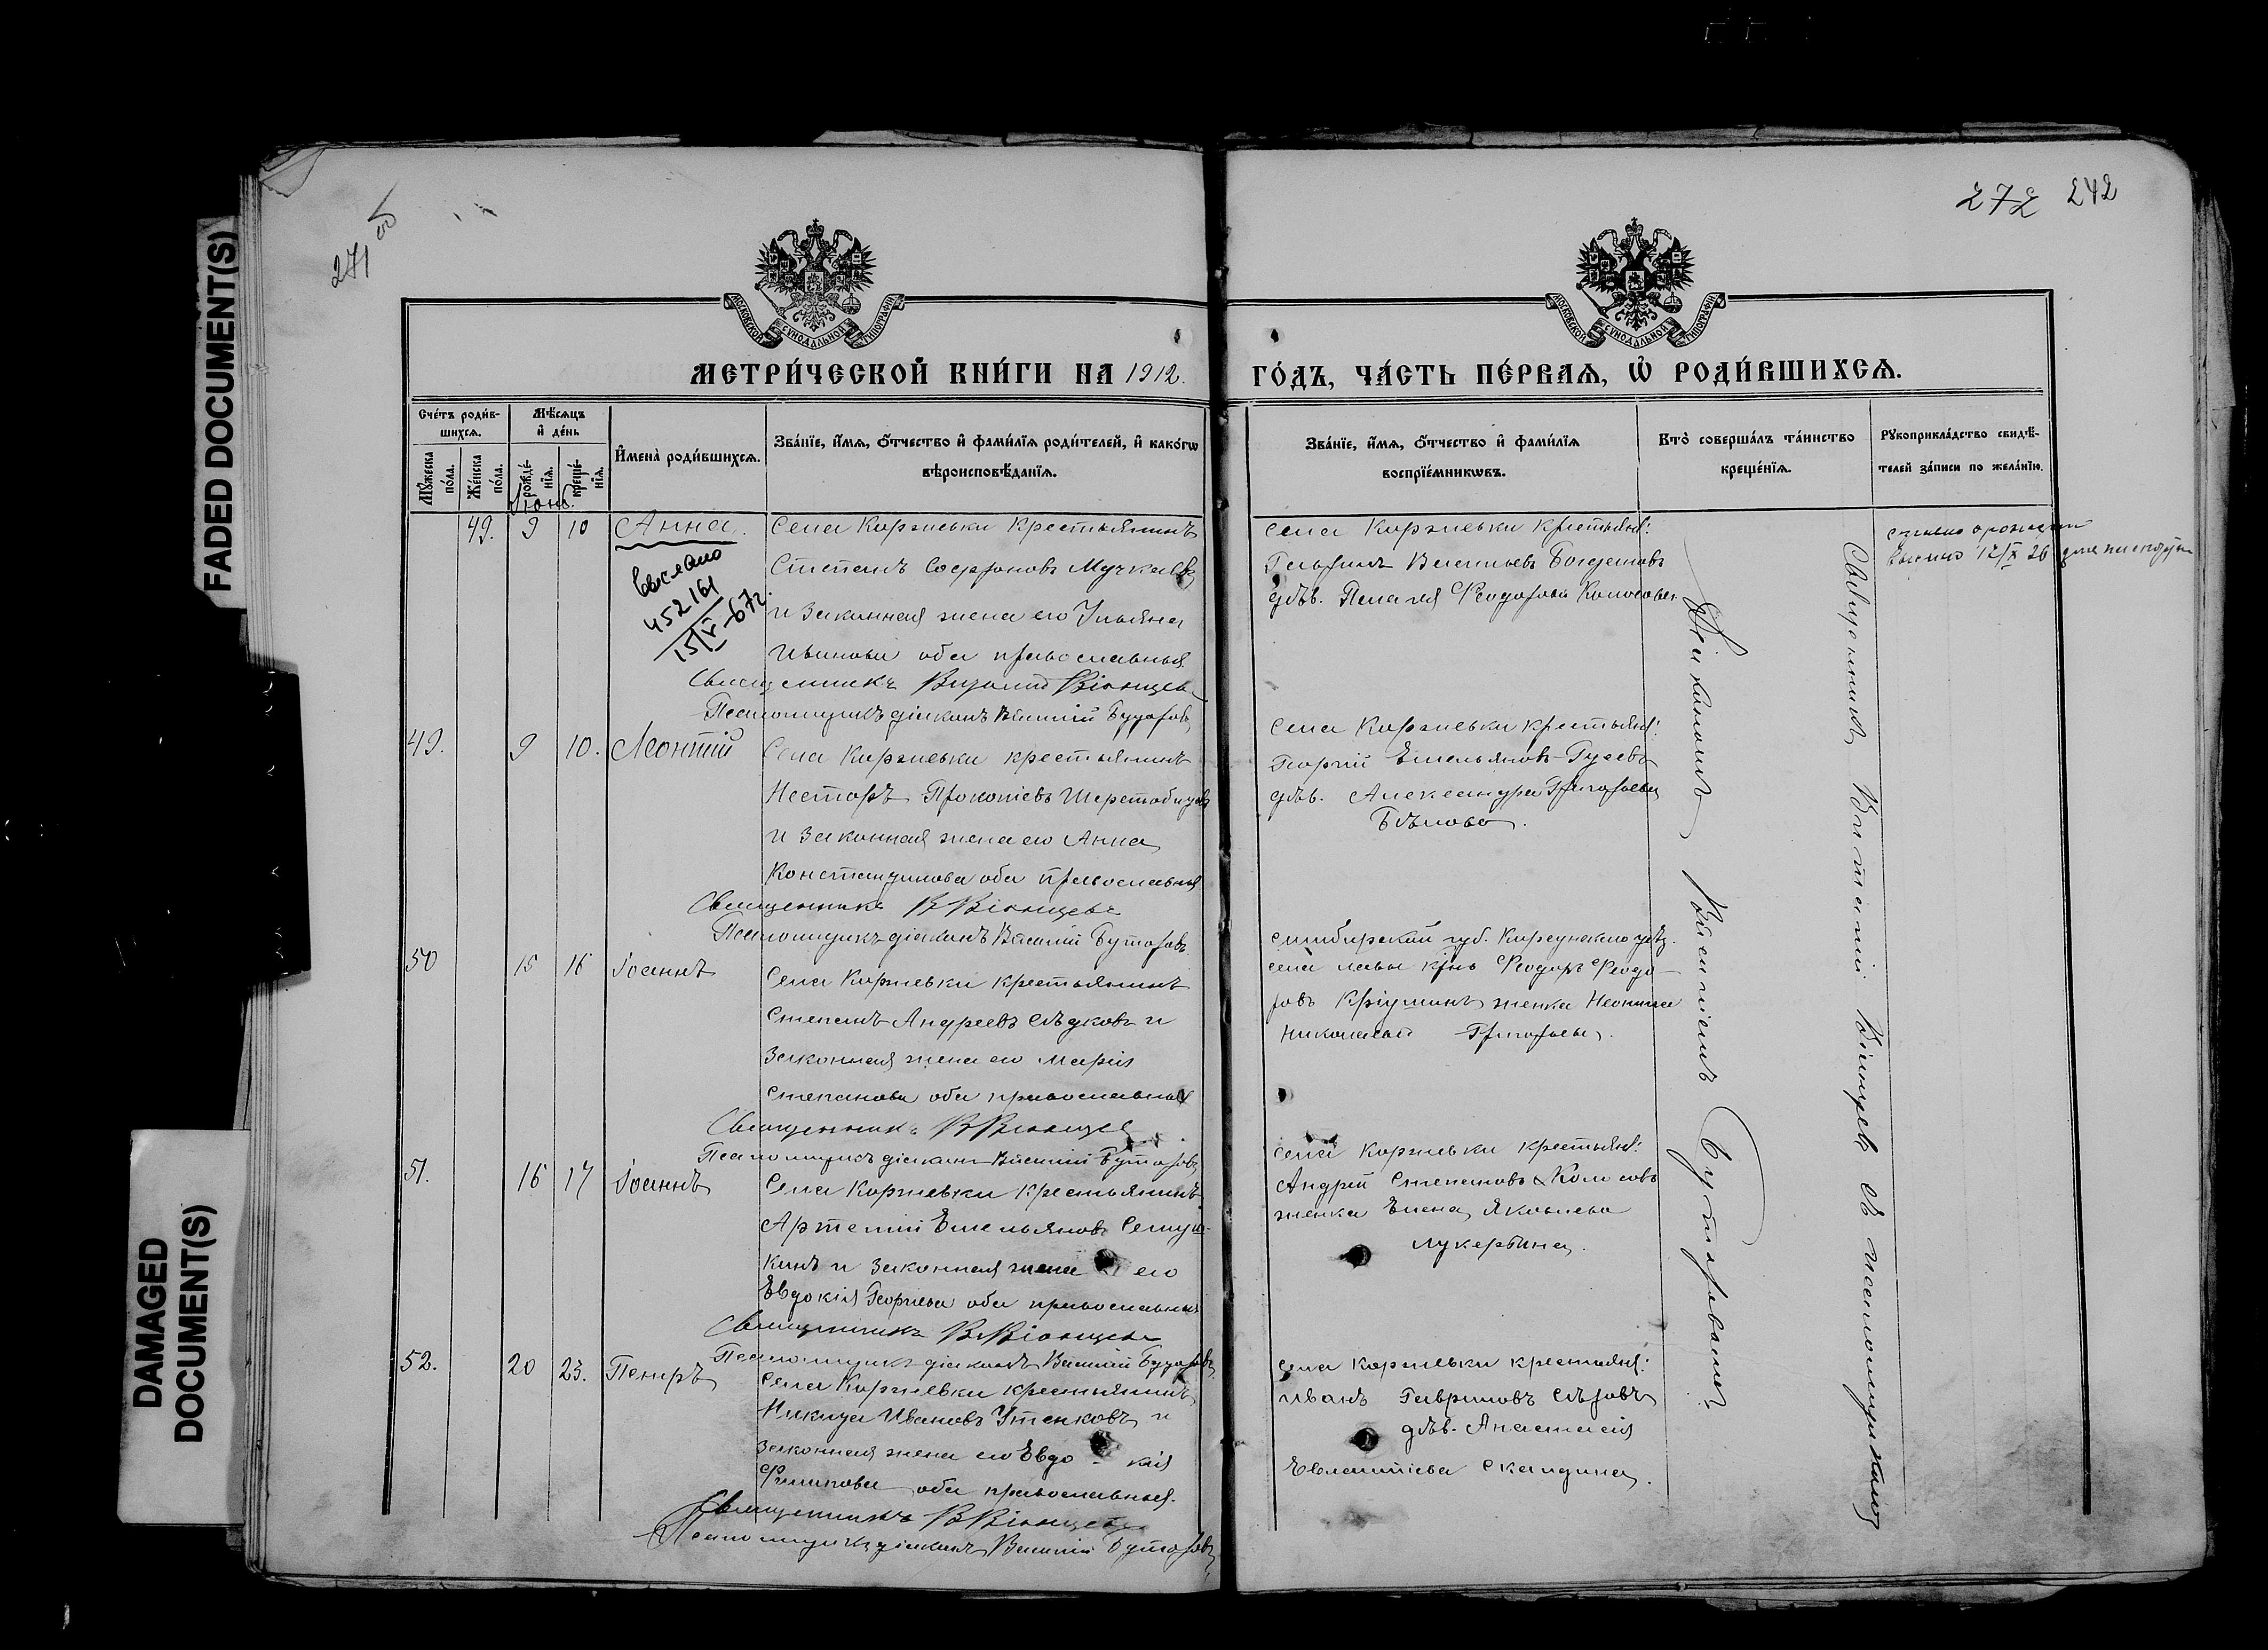 FADED DOCUMENT(S)
DAMAGED
DOCUMENT(S)
271 об
272 242
МОСКОВСКОЙ СѴНОДАЛЬНОЙ ТИПОГРАФІИ
МОСКОВСКОЙ СѴНОДАЛЬНОЙ ТИПОГРАФІИ
МЕТРИ́ЧЕСКОЙ КНИ́ГИ НА 1912.
ГО́ДЪ, ЧА́СТЬ ПЕ́РВАЯ, Ѡ҆ РОДИ́ВШИХСЯ.
Сче́тъ роди́в-
шихся.
Мꙋ́жеска по́ла.
Же́нска по́ла.
Мѣ́сяцъ
и҆ де́нь
рожде́-
нїя.
креще́-
нїя.
И҆мена̀ роди́вшихся.
Зва́нїе, и҆́мя, ѻ҆́тчество и҆ фами́лїя роди́телей, и҆ како́гѡ
вѣроисповѣ́данїя.
Зва́нїе, и҆́мя, ѻ҆́тчество и҆ фами́лїя
воспрїе́мникѡвъ.
Кто̀ соверша́лъ та́инство
креще́нїя.
Рꙋкоприкла́дство свидѣ́-
телей за́писи по жела́нїю.
49. 9 10 Анна.
выслано
452161
15/V-67г.
Села Коржевки крестьянинъ
Степанъ Софроновъ
и законная жена его Ульяна
Иванова оба православныя
Священникъ Віанцевъ
Псаломщикъ діаконъ Василій Буторовъ
Села Коржевки крестьяне:
дѣв. Пелагея Ѳеодорова
49. 9 10. Леонтій
Села Коржевки крестьянинъ
Несторъ Прокопіевъ
и законная жена его Анна
Константинова оба православныя
Священникъ В Віанцевъ
Псаломщикъ діаконъ Василій Буторовъ
Села Коржевки крестьяне:
Георгій Емельяновъ Гусевъ
дѣв. Александра Григорьева
Бѣлова.
50 15 16 Іоаннъ
Села Коржевки крестьянинъ
Степанъ Андреевъ Сѣдковъ и
законная жена его Марія
Степанова оба православныя
Священникъ В Віанцевъ
Псаломщикъ діаконъ Василій Буторовъ
Симбирской губ. Карсунскаго уѣз.
села Лавы крнъ Ѳеодоръ Ѳеодо-
ровъ женка
Николаева Григорьева.
51. 16 17 Іоаннъ
Села Коржевки крестьянинъ
Артемій Емельяновъ Семуш-
кинъ и законная жена его
Евдокія Георгіева оба православныя
Священникъ В Віанцевъ
Псаломщикъ діаконъ Василій Буторовъ
Села Коржевки крестьяне:
Андрей Степановъ Колосовъ
женка Елена Яковлева
Лукербина.
52. 20 23. Петръ
Села Коржевки крестьянинъ
Никита Ивановъ Утенковъ и
законная жена его Евдо - кія
Филипова оба православныя.
Священникъ В Віанцевъ
Псаломщикъ діаконъ Василій Буторовъ
Села Коржевки крестьяне:
Иванъ Гавриловъ Сѣровъ
дѣв. Анастасія
Евлампіева Скандина.
Священникъ Виталій Віанцевъ съ псаломщикомъ
Діакономъ Василіемъ Буторовымъ